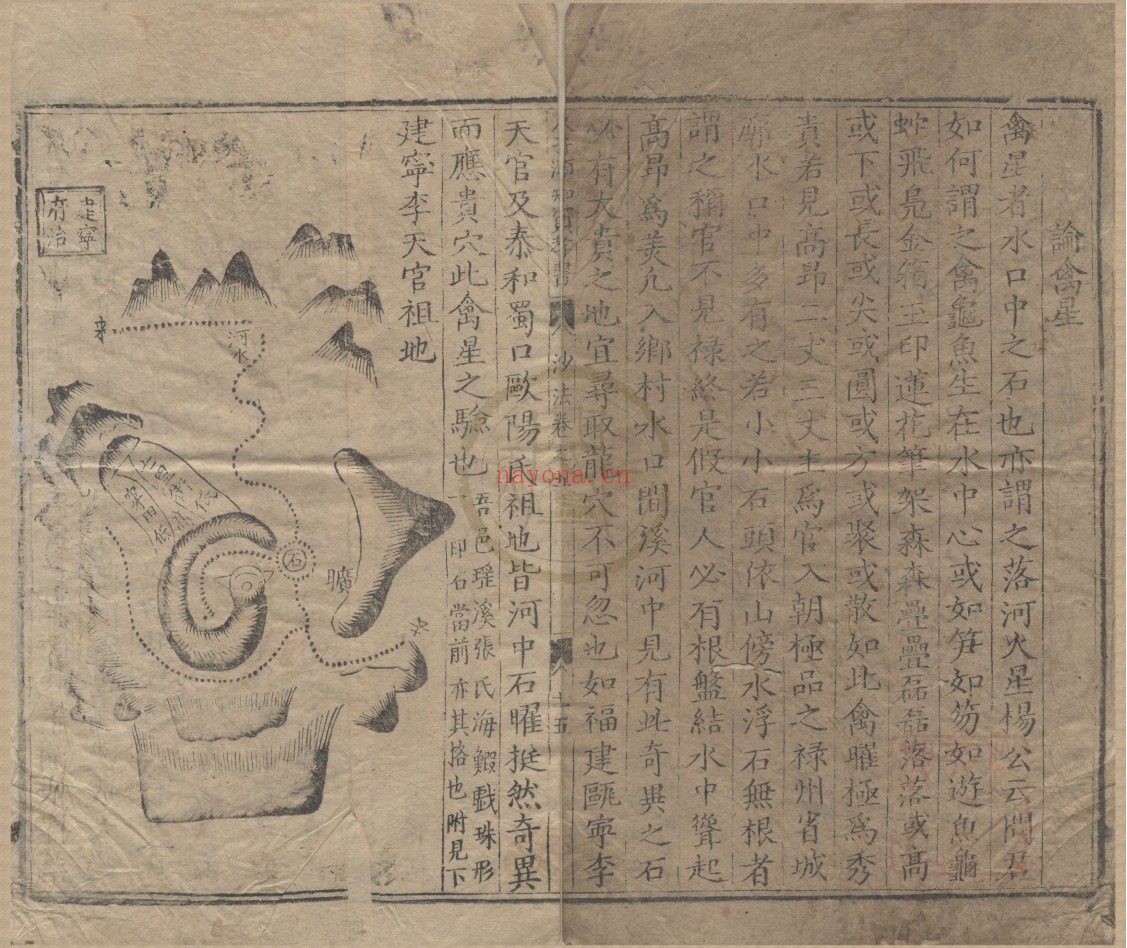 論禽星
禽星者水口中之石也亦謂之落河火星楊公云問君
如何謂之禽龜魚生在水中心或如笋如笏如遊魚龜
蛇飛鳧金箱玉印蓮花筆架森森疊疊磊磊落落或高
或下或長或尖或圓或方或聚或散如此禽曜極為秀
貴若見高昂二丈三丈主為官入朝極品之祿州省城
水口中多有之若小小石頭依山傍水浮石無根者
謂之稱官不見祿終是假官人必有根盤結水中聳起
高昂為美凡入鄉村水口間溪河中見有此奇異之石
必有大貴之地宜尋取龍穴不可忽也如福建甌寧李
沙法卷之
十五
天官及泰和蜀口歐陽氏祖地皆河中石曜挺然奇異
而應貴穴此禽星之驗也
吾邑瑶溪張氏海鰕戯珠形
一印石當前亦其格也附見下
建寧李天官祖地
建寧
府治
河水
石
曠
水
nayona.cn